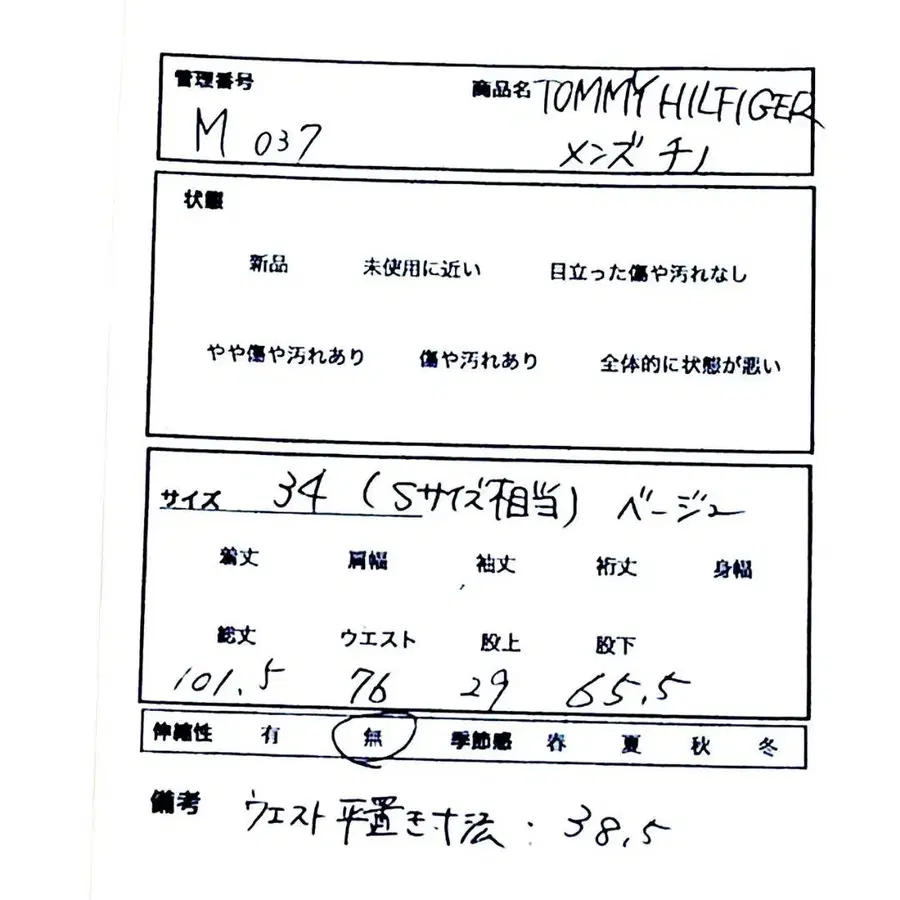 管理番号 商品名 TOMMY HILFIGER
M 037 メンズ チノ
状態
新品 未使用に近い 目立った傷や汚れなし
やや傷や汚れあり 傷や汚れあり 全体的に状態が悪い
サイズ 34 (Sサイズ相当) ベージュ
着丈 肩幅 袖丈 裄丈 身幅
総丈 ウエスト 股上 股下
101.5 76 29 65.5
伸縮性 有 無 季節感 春 夏 秋 冬
備考 ウエスト平置き寸法:38.5